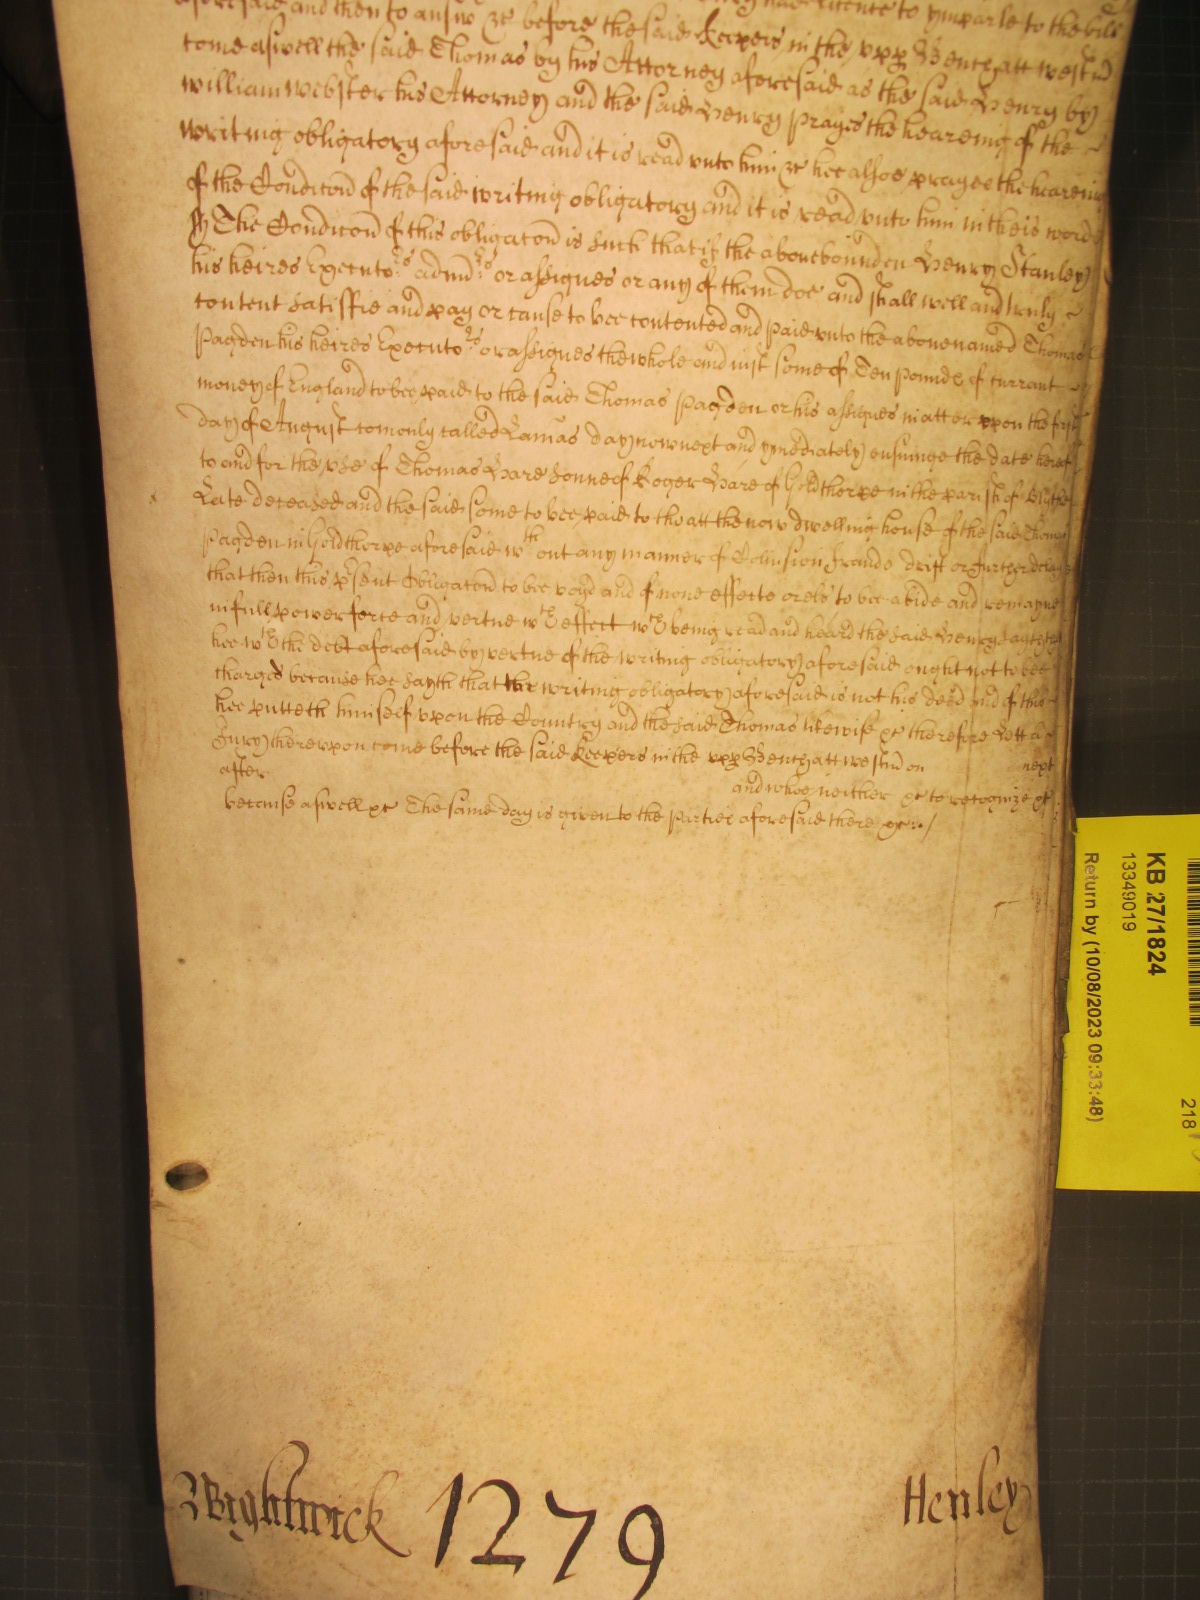 aforesaid and then to answ &c before the said Keepers in the upp Bench att Westm
come aswell the said Thomas by his Attorney aforesaid as the said Henry by
William Webster his Attorney and the said Henry prayes the heareing of the
writing obligatory aforesaid and it is read unto him &c hee alsoe prayes the heareing
of the Condicon of the said writing obligatory and it is read unto him in theis words
ss The Condicon of this obligacon is such that if the abovebounden Henry Stanley
his heires Executors admrs or assignes or any of them doe and shall well and truly
content satisfie and pay or cause to bee contented and paid unto the abovenamed Thomas
Pagden his heires Executors or assignes the whole and iust some of Ten pounds of currant
money of England to bee paid to the said Thomas Pagden or his assignes in att or uppon the first
day of August comonly called Lamas day now next and ymediately ensuinge the date hereof
to and for the use of Thomas Hare sonne of Roger Hare of Goldthorpe in the parish of Blithe
Late deceased and the said some to bee paid to the att the now dwelling house of the said Thomas
Pagden in Goldthorpe aforesaid wthout any manner of Collusion fraude drift or further delay
that then this psent Obligacon to bee voyd and of none effecte or els to bee abide and remayne
in full power force and vertue wth effect wch being read and heard the said Henry sayeth
hee wth the debt aforesaid by vertue of the writing obligatory aforesaid ought not to bee
charged because hee sayth that the writing obligatory aforesaid is not his deed and of this
hee putteth himself upon the Country and the said Thomas likewise &c therefore Lett a
Jury thereupon come before the said Keepers in the upp Bench att Westm on next
after and whoe neither &c to recognize &c
because aswell &c The same day is given to the parties aforesaid there &c
Wightwick 1279 Henley
KB 27/1824
13349019
Return by (10/08/2023 09:33:48)
218